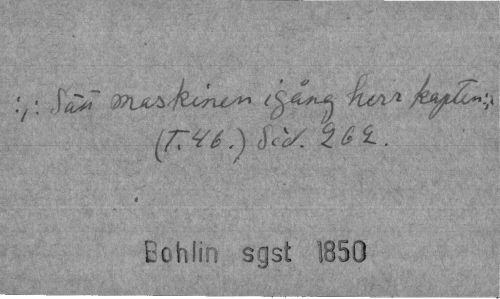 :,: Sätt maskinen igång herr kapten :,:
(T.46.) Sid. 262.
Bohlin sgst 1850